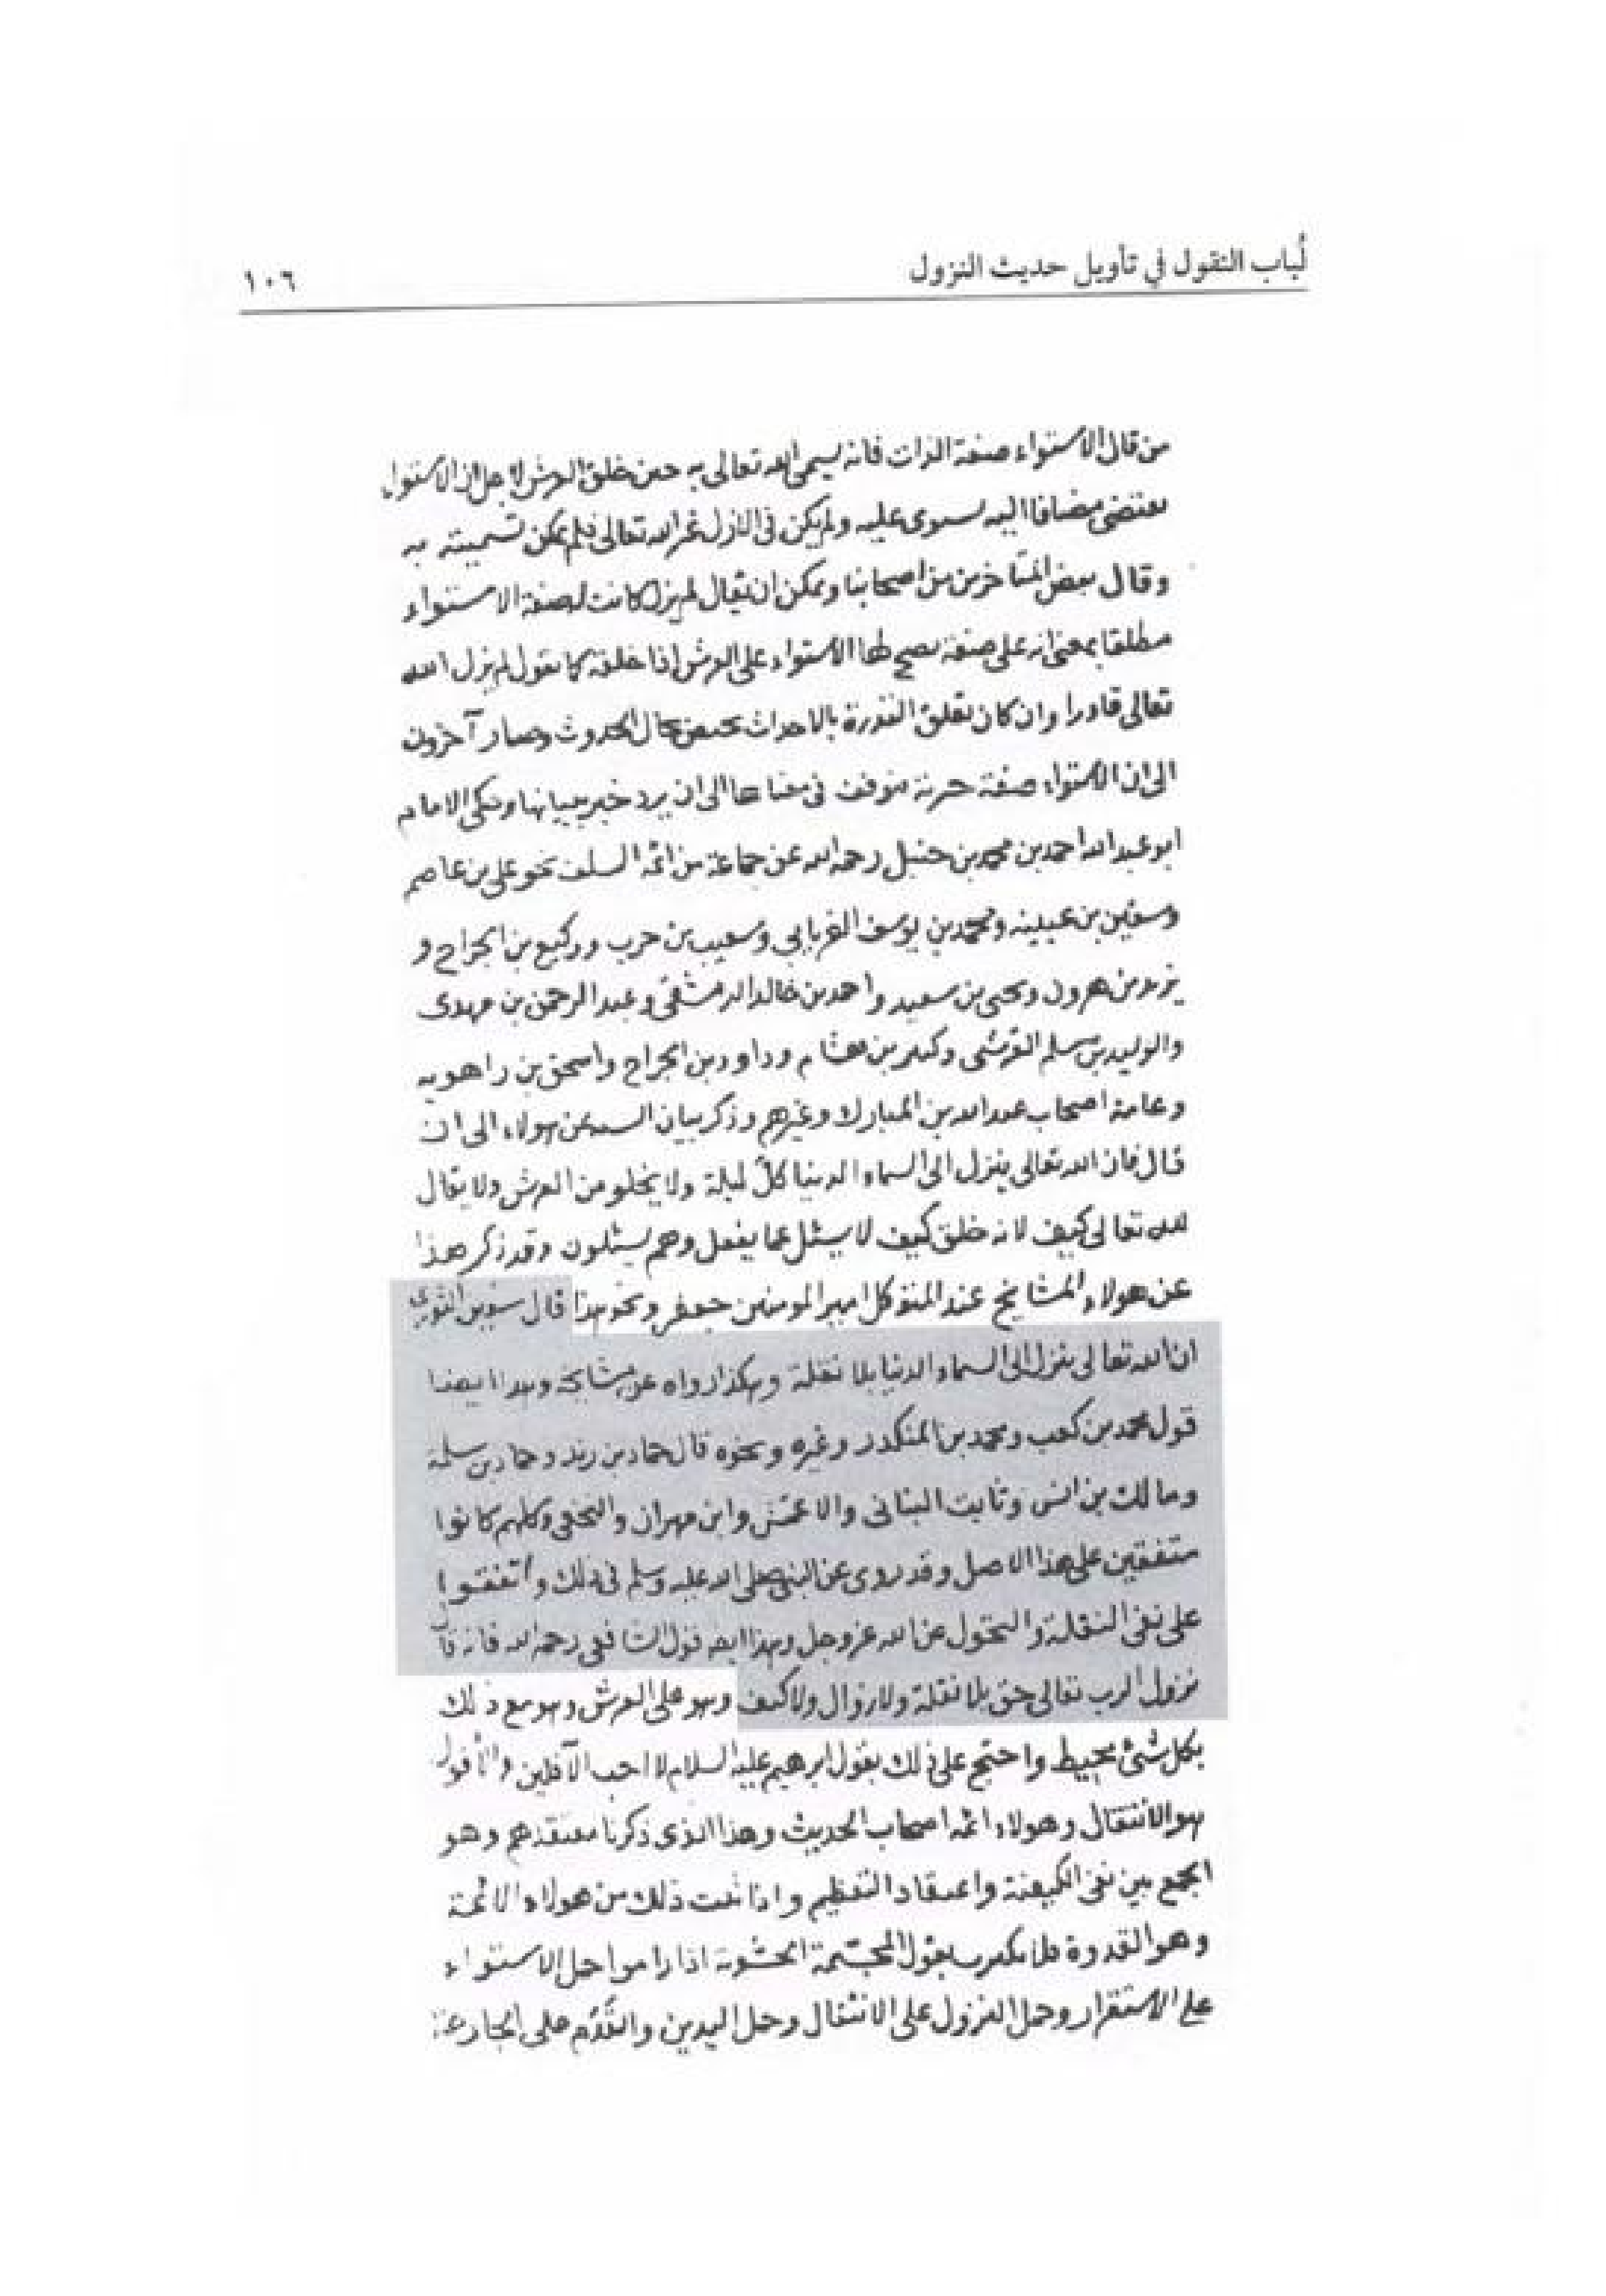 لُباب النقول في تأويل حديث النزول
١٠٦
من قال الاستواء صفة الذات فانه يسمى الله تعالى به حين خلق العرش لا لان الاستواء
يقتضي مضافا اليه يستوى عليه ولم يكن في الازل غير الله تعالى فلم يمكن تسميته به
وقال بعض المتأخرين من اصحابنا ويمكن ان يقال لم يزل كانت له صفة الاستواء
مطلقا بمعنى انه على صفة يصح لها الاستواء على العرش اذا خلقه كما نقول لم يزل الله
تعالى قادرا وان كان تعلق القدرة بالاحداث يختص بحال الحدوث وصار آخرون
الى ان الاستواء صفة خبرية نتوقف في معناها الى ان يرد خبر ببيانها وحكى الامام
ابو عبد الله احمد بن محمد بن حنبل رحمه الله عن جماعة من ائمة السلف نحو على بن عاصم
وسفين بن عيينه ومحمد بن يوسف الفريابي وشعيب بن حرب ووكيع بن الجراح و
يزيد بن هرون ويحيى بن سعيد واحمد بن خالد الدمشقي وعبد الرحمن بن مهدى
والوليد بن مسلم القرشى وكثير بن هشام وداود بن الجراح واسحق بن راهويه
وعامة اصحاب عبد الله بن المبارك وغيرهم وذكر بيان السنة عن هولاء الى ان
قال فان الله تعالى ينزل الى السماء الدنيا كلّ ليلة ولا يخلو من العرش ولا يقال
لله تعالى كيف لانه خلق كيف لا يسئل عما يفعل وهم يسئلون وقد ذكر هذا
عن هولاء المشايخ عند المتوكل امير المومنين جعفر وبنحو هذا قال سفين الثوري
ان الله تعالى ينزل الى السماء الدنيا بلا نقلة وهكذا رواه عن مشايخه وهذا ايضا
قول محمد بن كعب ومحمد بن المنكدر وغيره وبنحوه قال حماد بن زيد وحماد بن سلمة
ومالك بن انس وثابت البناني والاعمش وابن مهران والنخعي وكلهم كانوا
متفقين على هذا الاصل وقد روى عن النبي صلى الله عليه وسلم في ذلك واتفقوا
على نفى النقلة والتحول عن الله عز وجل وهذا ايضا قول الشافعي رحمه الله فانه قال
نزول الرب تعالى حق بلا نقلة ولا زوال ولا كيف وهو على العرش وهو مع ذلك
بكل شئ محيط واحتج على ذلك بقول ابرهيم عليه السلام لا احب الآفلين والأفول
هو الانتقال وهولاء ائمة اصحاب الحديث وهذا الذى ذكرنا معتقدهم وهو
الجمع بين نفى الكيفية واعتقاد التعظيم واذا ثبت ذلك من هولاء الائمة
وهو القدوة فلا بقول المجسّمة الحشوية اذا راموا حمل الاستواء
على الاستقرار وحمل النزول على الانتقال وحمل اليدين والقَدَم على الجارحة